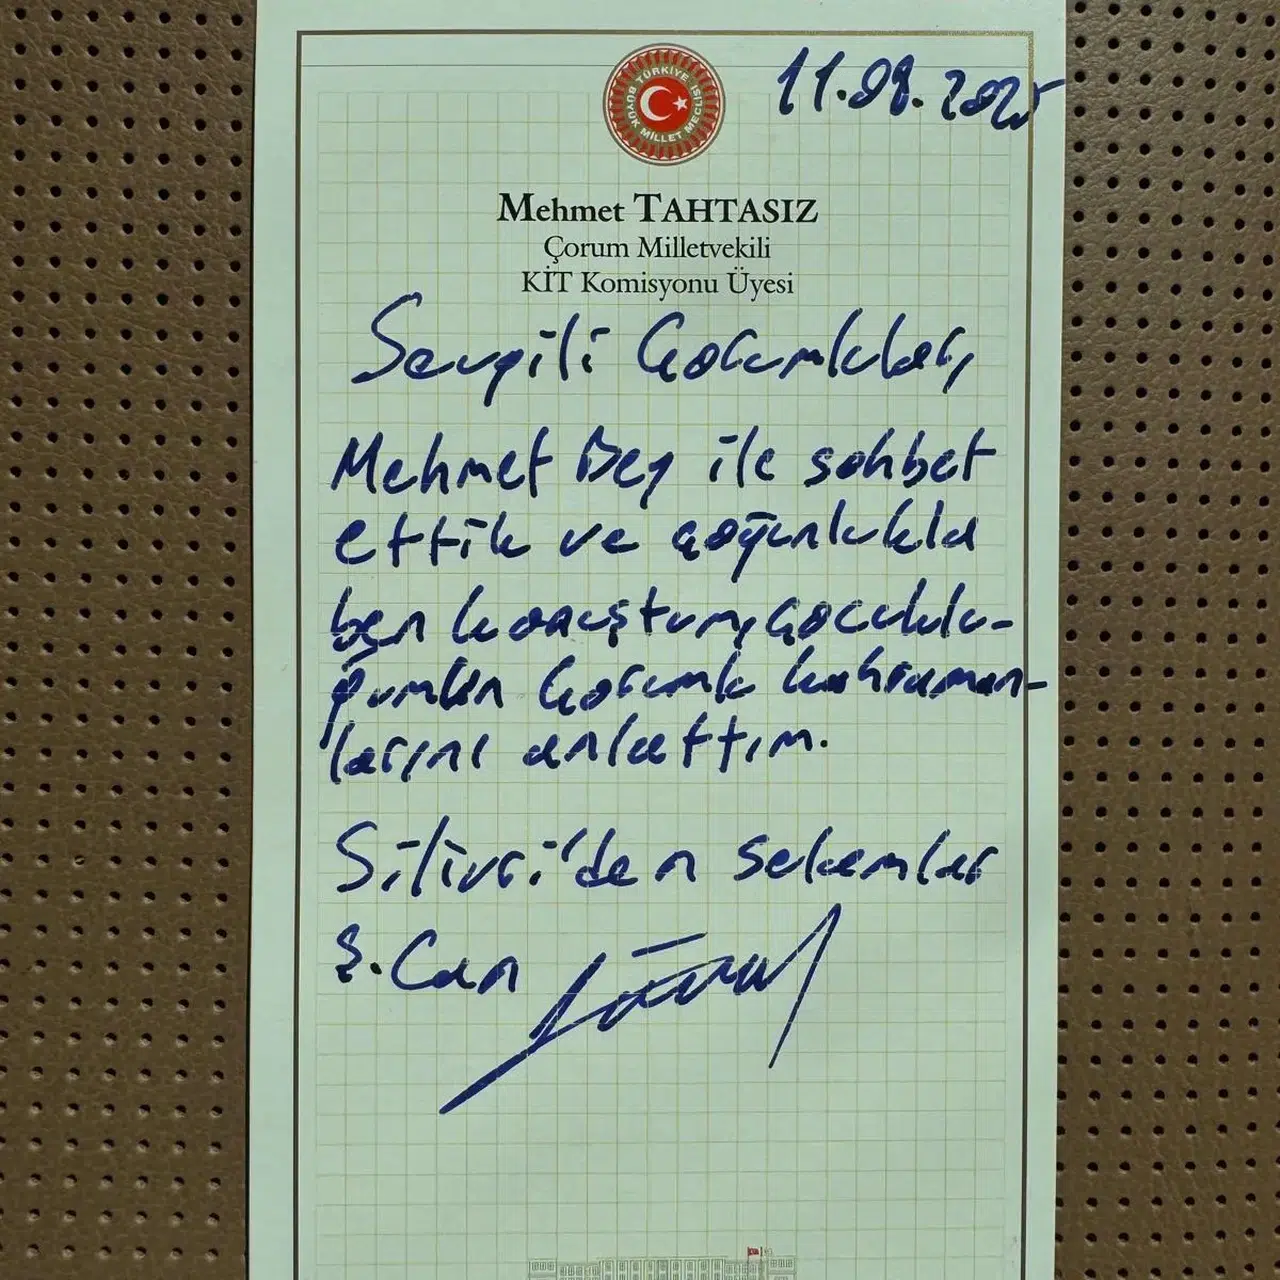 11.08.2025
TÜRKİYE BÜYÜK MİLLET MECLİSİ
Mehmet TAHTASIZ
Çorum Milletvekili
KİT Komisyonu Üyesi
Sevgili Çorumlular,
Mehmet Bey ile sohbet
ettik ve çoğunlukla
ben konuştum, çocuklu-
ğumun Çorumlu kahraman-
larını anlattım.
Silivri'den selamlar
Ş. Can